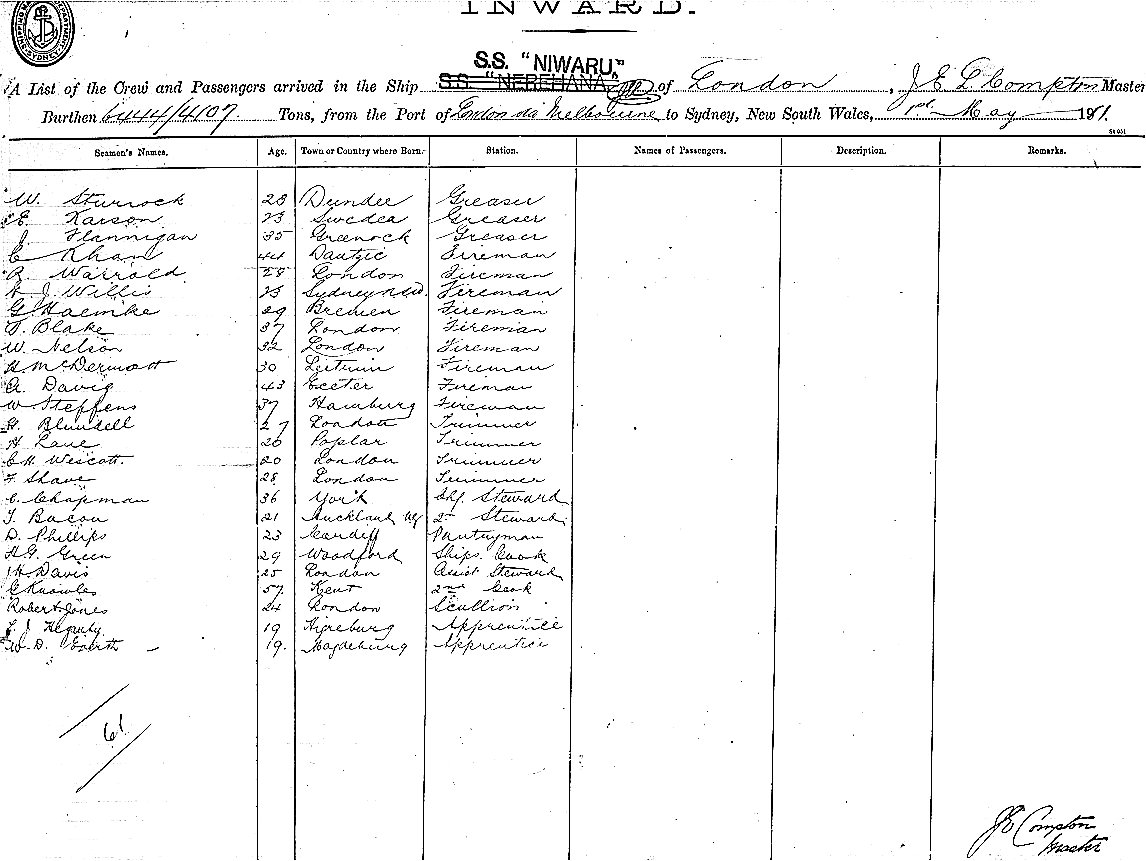 INWARD.
S.S. "NIWARU"
A List of the Crew and Passengers arrived in the Ship S.S. "NEREHANA" of London, J E L Compton Master
Burthen 6444/4107 Tons, from the Port of London via Melbourne to Sydney, New South Wales, 1st May 191
Seamen's Names. Age. Town or Country where Born. Station. Names of Passengers. Description. Remarks.
W. Sturrock 28 Dundee Greaser
E. Karson 23 Sweden Greaser
J. Flannigan 35 Greenock Greaser
C Khan 44 Dantzic Fireman
R. Warrold 28 London Fireman
J. Willis 23 Sydney NSW. Fireman
G. Haemke 29 Bremen Fireman
T. Blake 37 London Fireman
W. Nelson 32 London Fireman
H McDermott 30 Leitrim Fireman
A. Davis 43 Exeter Fireman
W Steffens 37 Hamburg Fireman
H. Blundell 27 London Trimmer
H Lane 26 Poplar Trimmer
C.H. Wescott. 20 London Trimmer
F. Shave 28 London Trimmer
C. Chapman 36 York Chf. Steward
T. Bacon 21 Auckland NZ 2nd Steward
D. Phillips 23 Cardiff Pantryman
H.G. Green 29 Woodford Ships Cook
H. Davis 25 London Assist Steward
C Knowles 57 Kent 2nd Cook
Robert Jones 24 London Scullion
J Heputy 19 Apprentice
W. D. 19. Magdeburg Apprentice
61
J E Compton
Master